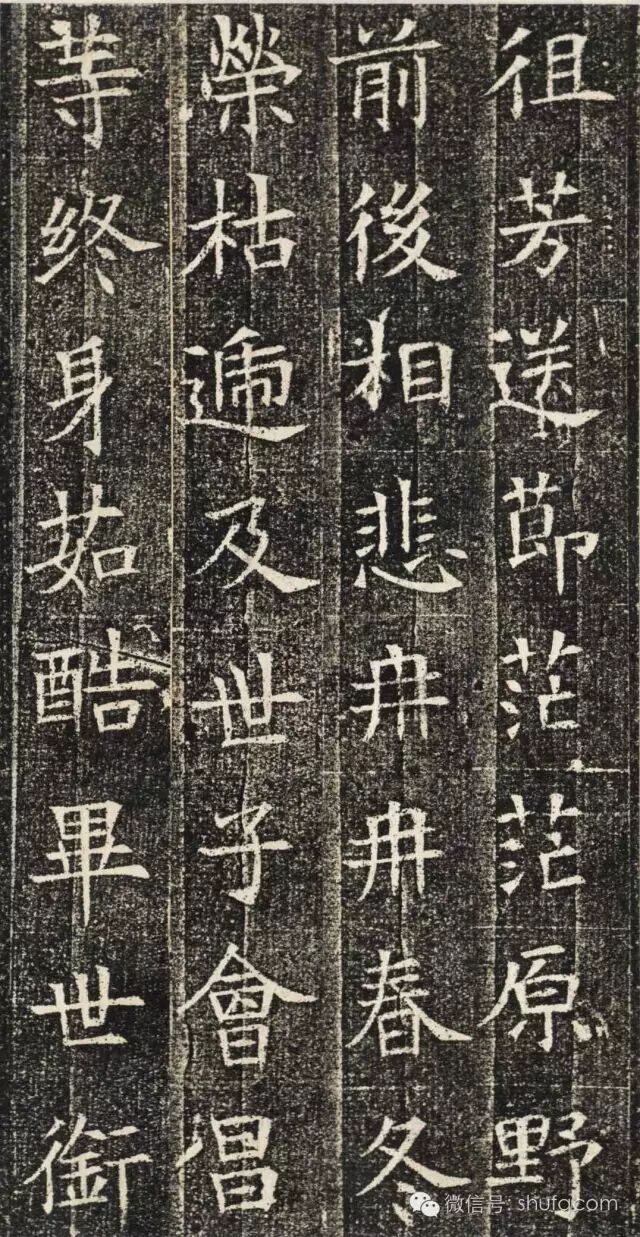 徂芳送莭茫茫原野
前後相悲冉冉春冬
榮枯遞及世子會倡
䓁終身茹酷畢世銜
微信号: shufa.com